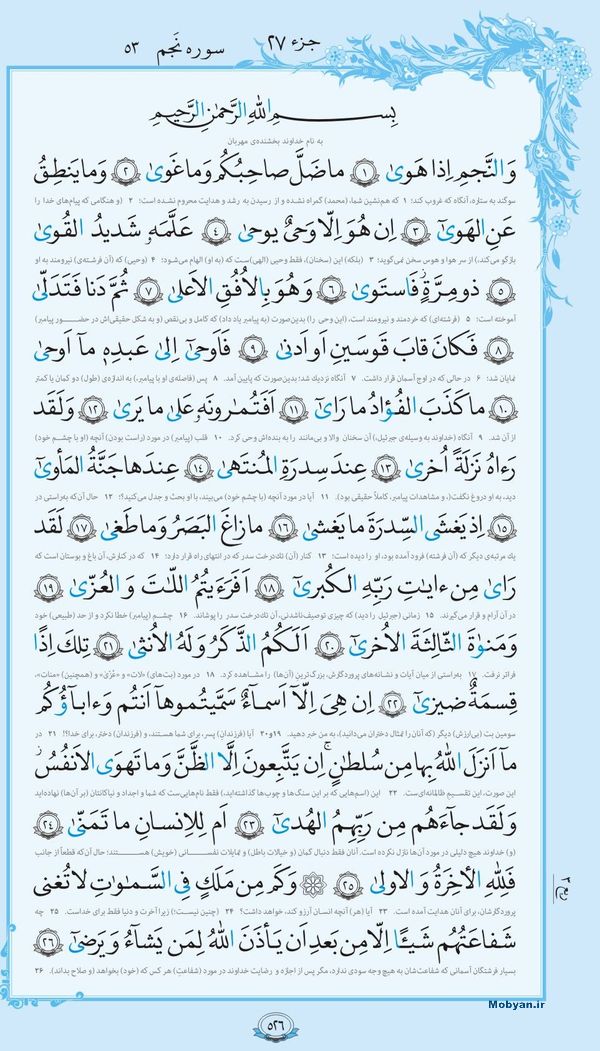 جزء ۲۷ سوره نجم ۵۳
بِسمِ اللهِ الرَّحمٰنِ الرَّحیمِ
به نام خداوند بخشنده‌ی مهربان
وَالنَّجمِ اِذا هَوىٰ ۱ ما ضَلَّ صاحِبُكُم وَما غَوىٰ ۲ وَما يَنطِقُ
سوگند به ستاره، آنگاه که غروب کند؛ ۱ که هم‌نشین شما، (محمد) گمراه نشده و از رسیدن به رشد و هدایت محروم نشده است؛ ۲ (و هنگامی که پیام‌های خدا را
عَنِ الهَوىٰٓ ۳ اِن هُوَ اِلّا وَحىٌ يوحىٰ ۴ عَلَّمَهٗ شَديدُ القُوىٰ
بازگو می‌کند،) از سر هوا و هوس سخن نمی‌گوید؛ ۳ (بلکه) این (سخنان)، فقط وحیی (الهی) است که (به او) الهام می‌شود؛ ۴ (وحیی) که (آن فرشته‌ی) نیرومند به او
۵ ذو مِرَّةٍ فَاستَوىٰ ۶ وَهُوَ بِالاُفُقِ الاَعلىٰ ۷ ثُمَّ دَنا فَتَدَلّىٰ
آموخته است؛ ۵ (فرشته‌ای) که خردمند و نیرومند است، (این وحی را) بدین‌صورت (به پیامبر یاد داد) که کامل و بی‌نقص (و به شکل حقیقی‌اش در حضور پیامبر)
۸ فَكانَ قابَ قَوسَينِ اَو اَدنىٰ ۹ فَاَوحىٰٓ اِلىٰ عَبدِهٖ مآ اَوحىٰ
نمایان شد؛ ۶ در حالی که در اوج آسمان قرار داشت. ۷ آنگاه نزدیك شد؛ بدین‌صورت که پایین آمد. ۸ پس (فاصله‌ی او با پیامبر)، به اندازه‌ی (طول) دو کمان یا کمتر
۱۰ ما كَذَبَ الفُؤادُ ما رَاىٰٓ ۱۱ اَفَتُمٰرونَهٗ عَلىٰ ما يَرىٰ ۱۲ وَلَقَد
از آن شد. ۹ آنگاه (خداوند به وسیله‌ی جبرئیل)، آن سخنان والا و بی‌مانند را به بنده‌اش وحی کرد. ۱۰ قلب (پیامبر) در مورد (راست بودن) آنچه (او با چشم خود)
رَءاهُ نَزلَةً اُخرىٰ ۱۳ عِندَ سِدرَةِ المُنتَهىٰ ۱۴ عِندَها جَنَّةُ المَأوىٰٓ
دید، به او دروغ نگفت، (و مشاهدات پیامبر، کاملاً حقیقی بود). ۱۱ آیا در مورد آنچه (با چشم خود) می‌بیند، با او بحث و جدل می‌کنید؟! ۱۲ حال آن‌که به‌راستی در
۱۵ اِذ يَغشَى السِّدرَةَ ما يَغشىٰ ۱۶ ما زاغَ البَصَرُ وَما طَغىٰ ۱۷ لَقَد
یك مرتبه‌ی دیگر که (آن فرشته) فرود آمده بود، او را دیده است؛ ۱۳ کنار (آن) تك‌درخت سدر که در انتهای راه قرار دارد؛ ۱۴ که در کنارش، آن باغ و بوستان است که
رَاىٰ مِن ءاياتِ رَبِّهِ الكُبرىٰٓ ۱۸ اَفَرَءَيتُمُ اللّاتَ وَالعُزّىٰ ۱۹
در آن آرام و قرار می‌گیرند. ۱۵ زمانی (جبرئیل را دید) که چیزی توصیف‌ناشدنی، آن تك‌درخت سدر را پوشاند. ۱۶ چشم (پیامبر) خطا نکرد و از حد (طبیعی) خود
وَمَنوٰةَ الثّالِثَةَ الاُخرىٰٓ ۲۰ اَلَكُمُ الذَّكَرُ وَلَهُ الاُنثىٰ ۲۱ تِلكَ اِذًا
فراتر نرفت. ۱۷ به‌راستی از میان آیات و نشانه‌های پروردگارش، بزرگ‌ترین (آن‌ها) را مشاهده کرد. ۱۸ در مورد (بت‌های) «لات» و «عُزّی» و (همچنین) «منات»،
قِسمَةٌ ضيزىٰٓ ۲۲ اِن هِىَ اِلّآ اَسمآءٌ سَمَّيتُموهآ اَنتُم وَءابآؤُكُم
سومین بت (بی‌ارزش) دیگر (که آنان را تمثال دختران می‌دانید)، به من خبر دهید. ۱۹و۲۰ آیا (فرزندانِ) پسر، برای شما هستند، و (فرزندان) دختر، برای خدا؟! ۲۱ در
مآ اَنزَلَ اللهُ بِها مِن سُلطانٍ اِن يَتَّبِعونَ اِلَّا الظَّنَّ وَما تَهوَى الاَنفُسُ
این صورت، این تقسیم ظالمانه‌ای‌ست. ۲۲ این (اسم‌هایی که بر این سنگ‌ها و چوب‌ها گذاشته‌اید)، فقط نام‌هایی‌ست که شما و اجداد و نیاکانتان (بر آن‌ها) نهاده‌اید
وَلَقَد جآءَهُم مِن رَبِّهِمُ الهُدىٰٓ ۲۳ اَم لِلاِنسانِ ما تَمَنّىٰ ۲۴
(و) خداوند هیچ دلیلی در مورد آن‌ها نازل نکرده است. آنان فقط دنبال گمان (و خیالات باطل) و تمایلات نفسانی (خویش) هستند؛ حال آن‌که قطعاً از جانب
فَلِلّٰهِ الاٰخِرَةُ وَالاولىٰ ۲۵ وَكَم مِن مَلَكٍ فِى السَّمٰوٰتِ لا تُغنى
پروردگارشان، برای آنان هدایت آمده است. ۲۳ آیا (هر) آنچه انسان آرزو کند، خواهد داشت؟ ۲۴ (چنین نیست؛) زیرا آخرت و دنیا فقط برای خداست. ۲۵ چه
شَفاعَتُهُم شَيـًٔا اِلّا مِن بَعدِ اَن يَأذَنَ اللهُ لِمَن يَشآءُ وَيَرضىٰٓ ۲۶
بسیار فرشتگان آسمانی که شفاعت‌شان به هیچ وجه سودی ندارد، مگر پس از اجازه و رضایت خداوند در مورد (شفاعتِ) هر کس که (خود) بخواهد (و صلاح بداند). ۲۶
Mobyan.ir
۵۲۶